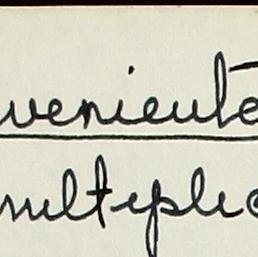 veniente
multiplic